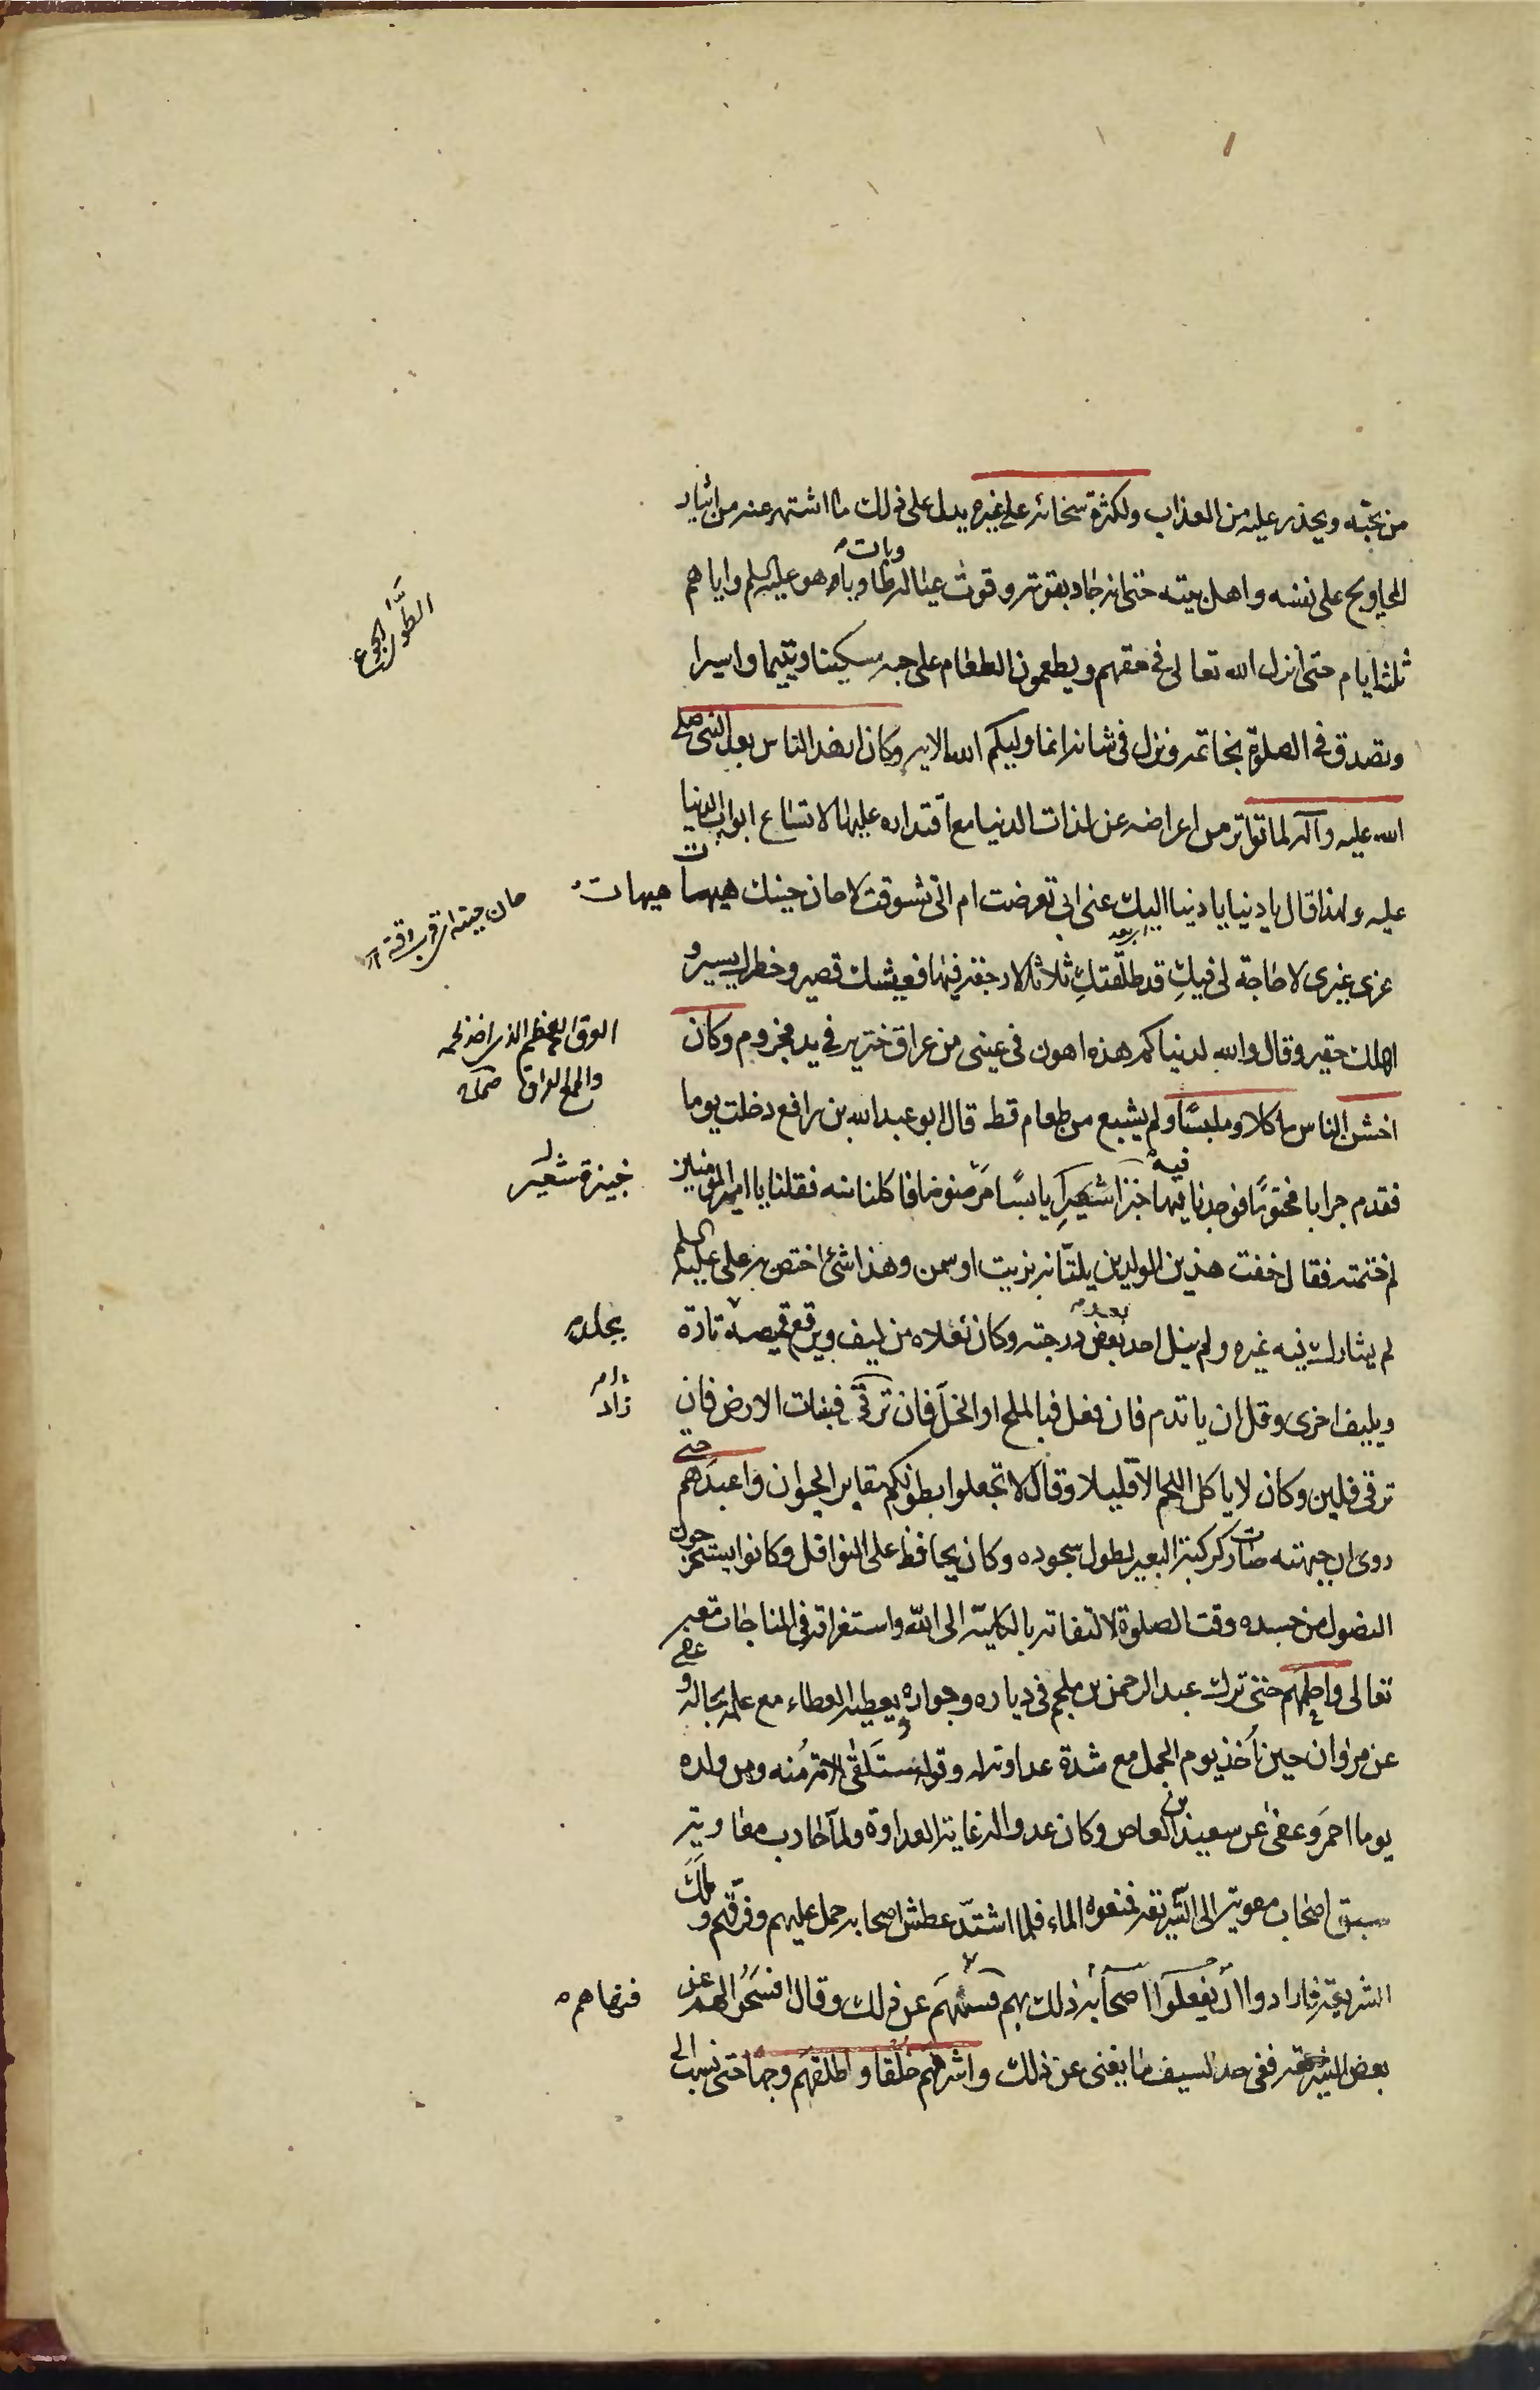 من يحبّه ويحذر عليه من العذاب ولكثرة سخائه على غيره يدل على ذلك ما اشتهر عنه من ايثار
المحاويج على نفسه واهل بيته حتى انه جاد بقوته وقوت عياله طاويا وبات هو عليه السلم واياهم
الطوى الجوع
ثلثة ايام حتى انزل الله تعالى في حقهم ويطعمون الطعام على حبه مسكينا ويتيما واسيرا
وتصدق في الصلوة بخاتمه ونزل في شانه انما وليكم الله الاية وكان ازهد الناس بعد النبى صلى
الله عليه وآله لما تواتر من اعراضه عن لذات الدنيا مع اقتداره عليها لاتساع ابواب الدنيا
عليه ولهذا قال يا دنيا يا دنيا اليك عنى ابي تعرضت ام الىّ تشوقت لا حان حينك هيهات هيهات
حان حينه اى قرب وقته
غرى غيرى لا حاجة لى فيكِ قد طلّقتكِ ثلاثا لا رجعة فيها فعيشك قصير وخطرك يسير و
املك حقير وقال والله لدنياكم هذه اهون فى عينى من عراق خنزير في يد مجزوم وكان
العرق العظم الذى اخذ لحمه
والجمع العراق
اخشن الناس ماكلا وملبسًا ولم يشبع من طعام قط قال ابو عبد الله بن رافع دخلت يوما
فقدم جرابا مختومًا فوجدنا فيه خبزا شعيرا يابسًا مرضوضا فاكلنا منه فقلنا يا امير المؤمنين
خبزة شعير
لم ختمته فقال خفت هذين الولدين يلتّانه بزيت او سمن وهذا شئ اختص به على عليه السلم
لم يشاركه فيه غيره ولم ينل احد بعض درجته وكان نعلاه من ليف ويرقع قميصه تارة
بجلد
وبليف اخرى وقل ان ياتدم فان فعل فبالملح او الخلّ فان ترقى فبنبات الارض فان
زاد
ترقى فلبن وكان لا ياكل اللحم الا قليلا وقال لا تجعلوا بطونكم مقابر الحيوان واعبدهم حتى
روى ان جبهته صارت كركبة البعير لطول سجوده وكان يحافظ على النوافل وكانوا يستخرجون
النصول من جسده وقت الصلوة لالتفاته بالكلية الى الله واستغراقه في المناجات معه
تعالى واحلمهم حتى ترك عبد الرحمن بن ملجم في دياره وجواره يعطيه العطاء مع علمه بحاله وعفى
عن مروان حين اُخذ يوم الجمل مع شدة عداوته له وقوله ستلقى الامة منه ومن ولده
يوما احمر وعفى عن سعيد بن العاص وكان عدوا له غاية العداوة ولما حارب معاوية
سبق اصحاب معوية الى الشريعة فمنعوه الماء فلما اشتدّ عطش اصحابه حمل عليهم وفرّقهم وملك
الشريعة فارادوا ان يفعلوا اصحابه ذلك بهم فنهاهم عن ذلك وقال افسحوا لهم عن
فنهاهم
بعض الشريعة ففى حد السيف ما يغنى عن ذلك واشرفهم خلقا واطلقهم وجها حتى نسب الى